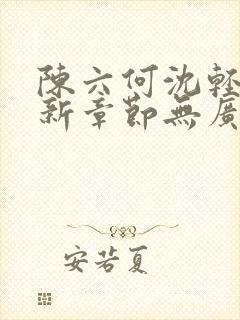 陳六何沈輕
新章節無廣
安若夏